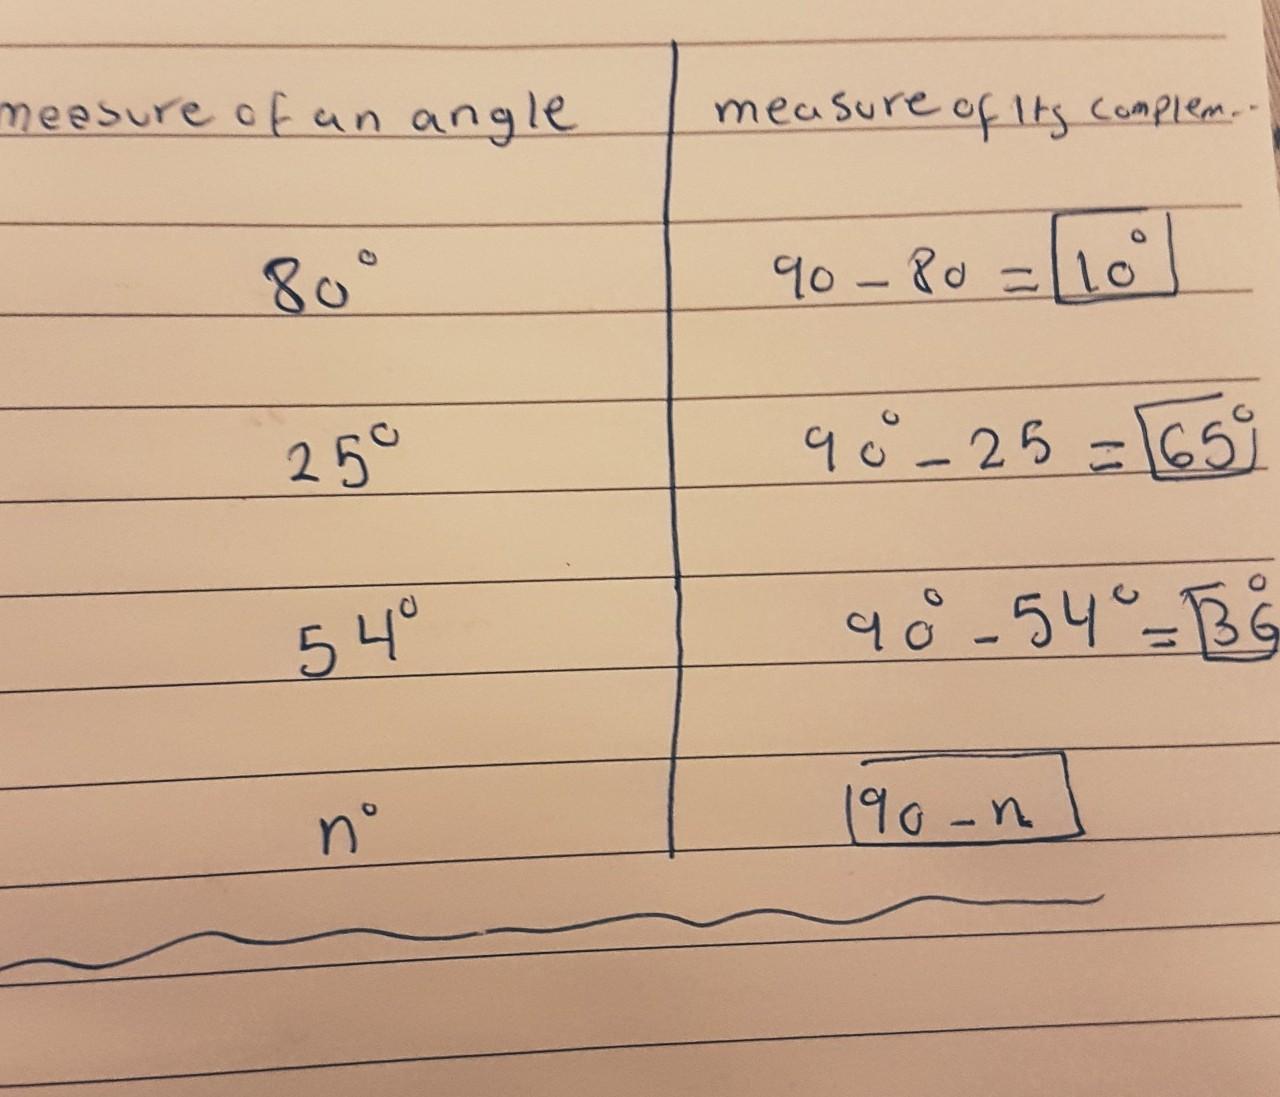 meesure of an angle measure of Its complem..
80° 90 - 80 = 10°
25° 90° - 25 = 65°
54° 90° - 54° = 36°
n° 90 - n